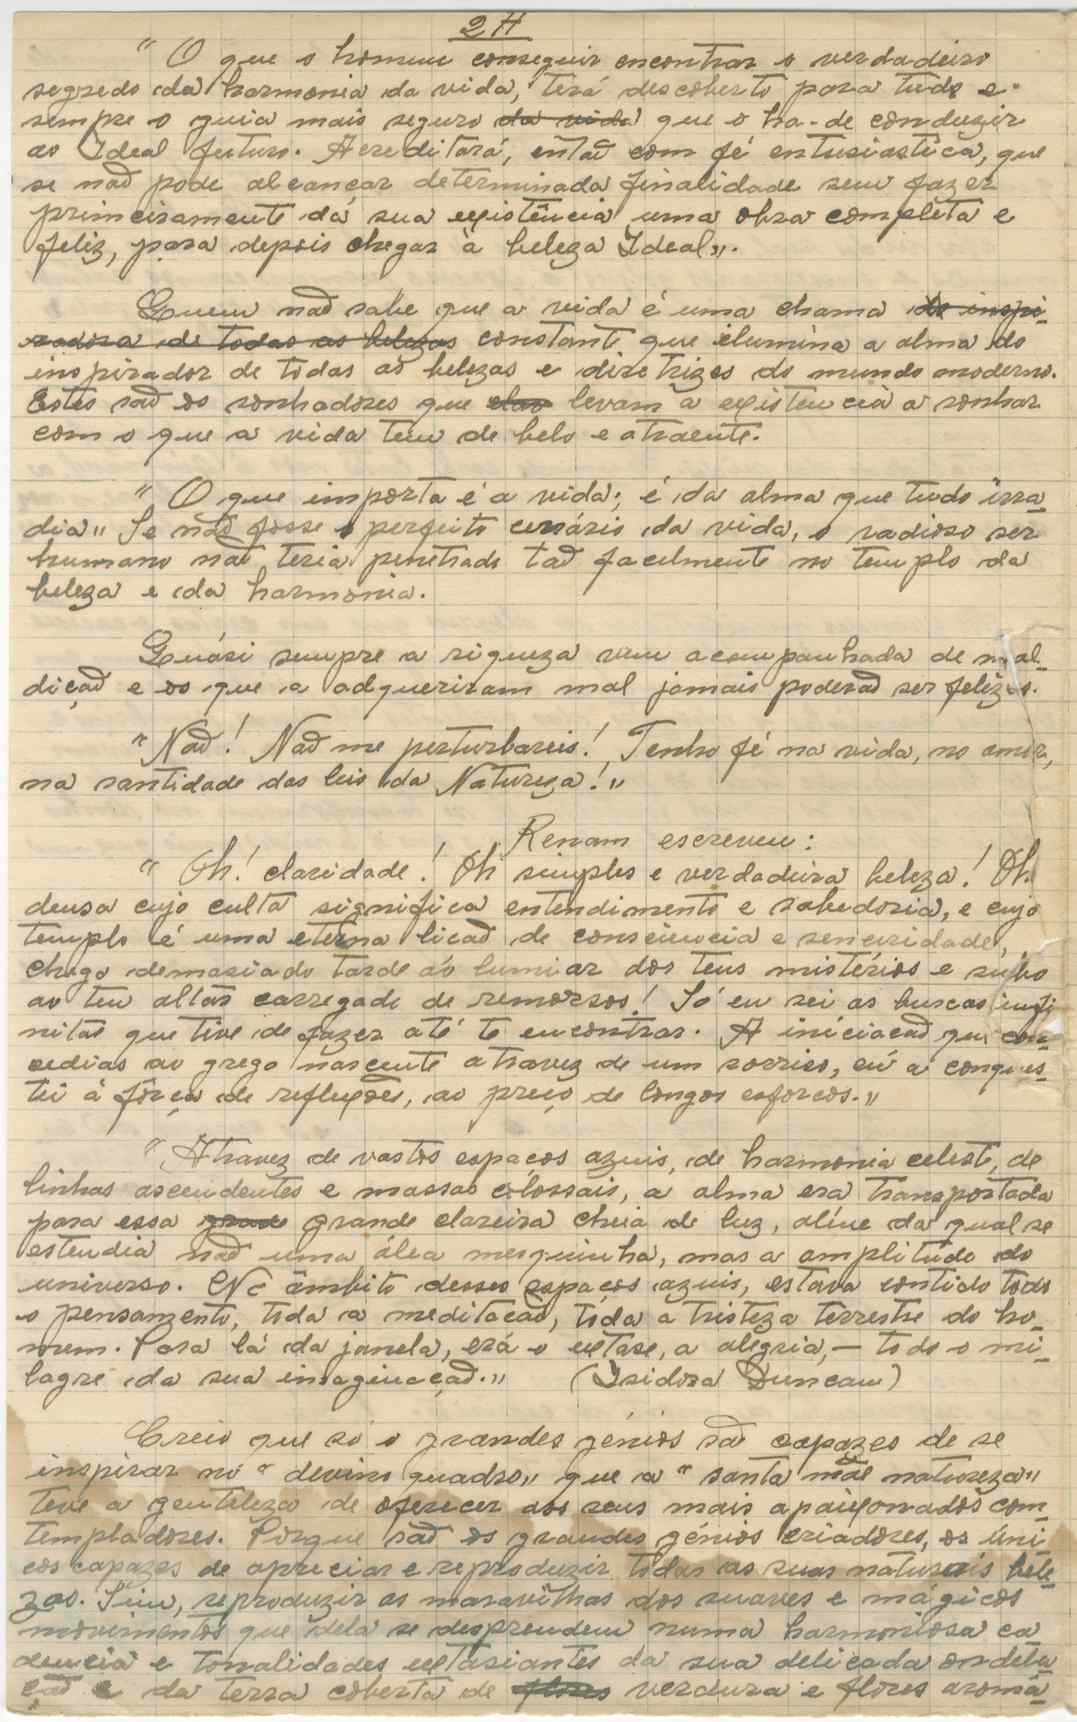 24
" O que o homem conseguir encontrar o verdadeiro
segredo da harmonia da vida, terá descoberto para tudo e
sempre o guia mais seguro da vida que o ha-de conduzir
ao Ideal futuro. Acreditará, entaõ com fé entusiastica, que
se naõ pode alcançar determinada finalidade sem fazer
primeiramente da sua existência uma obra completa e
feliz, para depois chegar à beleza Ideal".
Quem naõ sabe que a vida é uma chama de inspi-
radora de todas as belezas constante que ilumina a alma do
inspirador de todas as belezas e diretrizes do mundo moderno.
Estes saõ os sonhadores que levam a existencia a sonhar
com o que a vida tem de belo e atraente.
" O que importa é a vida; é da alma que tudo irra-
dia" Se naõ fosse o perfeito cenário da vida, o radioso ser
humano naõ teria penetrado taõ facilmente no templo da
beleza e da harmonia.
Quási sempre a riqueza vem acompanhada de mal-
diçaõ e os que a adqueriram mal jamais poderaõ ser felizes.
"Naõ! Naõ me perturbareis! Tenho fé na vida, no amor,
na santidade das leis da Natureza!"
Renam escreveu:
" Oh! claridade! Oh simples e verdadeira beleza! Oh
deusa cujo culta significa entendimento e sabedoria, e cujo
templo é uma eterna licaõ de consciencia e senciridade,
chego demasiado tarde áo lumiar dos teus mistérios e subo
ao teu altar carregado de remorsos! Só eu sei as buscas infi
nitas que tive de fazer até te encontrar. A iniciacaõ que con-
cedias ao grego nascente atravez de um sorriso, eu a conques-
tei à fôrça de reflexões, ao preço de longos esforcos."
"Atravez de vastos espacos azuis, de harmonia celeste, de
linhas ascendentes e massas colossais, a alma era transportada
para essa grade grande clareira cheia de luz, alíne da qual se
estendia naõ uma álea mesquinha, mas a amplitude do
universo. No âmbito desses espaços azuis, estava contido todo
o pensamento, toda a meditacaõ, toda a tristeza terrestre do ho-
mem. Para lá da janela, erá o extase, a alegria, — todo o mi-
lagre da sua imaginaçaõ." (Isidora Duncan)
Creio que só o grandes génios saõ capazes de se
inspirar no "devino quadro" que a "santa mãe natureza"
teve a gentileza de oferecer aos seus mais apaixonados com-
templadores. Porque saõ os grandes génios criadores, os úni-
cos capazes de apreciar e reproduzir todas as suas naturais bele-
zas. Sim, reproduzir as maravilhas dos suaves e mágicos
movimentos que dela se desprendem numa harmoniosa ca
dencia e tonalidades extasiantes da sua delicada ondula
çaõ e da terra coberta de flores verdura e flores aromá-